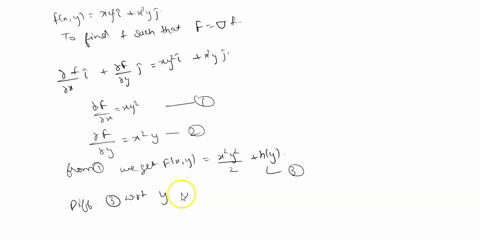 f(x,y) = xy î + x²y ĵ.
To find f such that F = ∇f.
∂f/∂x î + ∂f/∂y ĵ = xy² î + x²y ĵ.
∂f/∂x = xy² — ①
∂f/∂y = x²y — ②
from ① we get F(x,y) = x²y²/2 + h(y). ③
Diff ③ wrt y